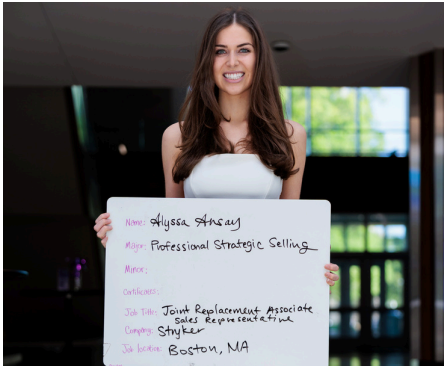 Name: Alyssa Ansay
Major: Professional Strategic Selling
Minor:
Certificates:
Job Title: Joint Replacement Associate
Sales Representative
Company: Stryker
Job location: Boston, MA